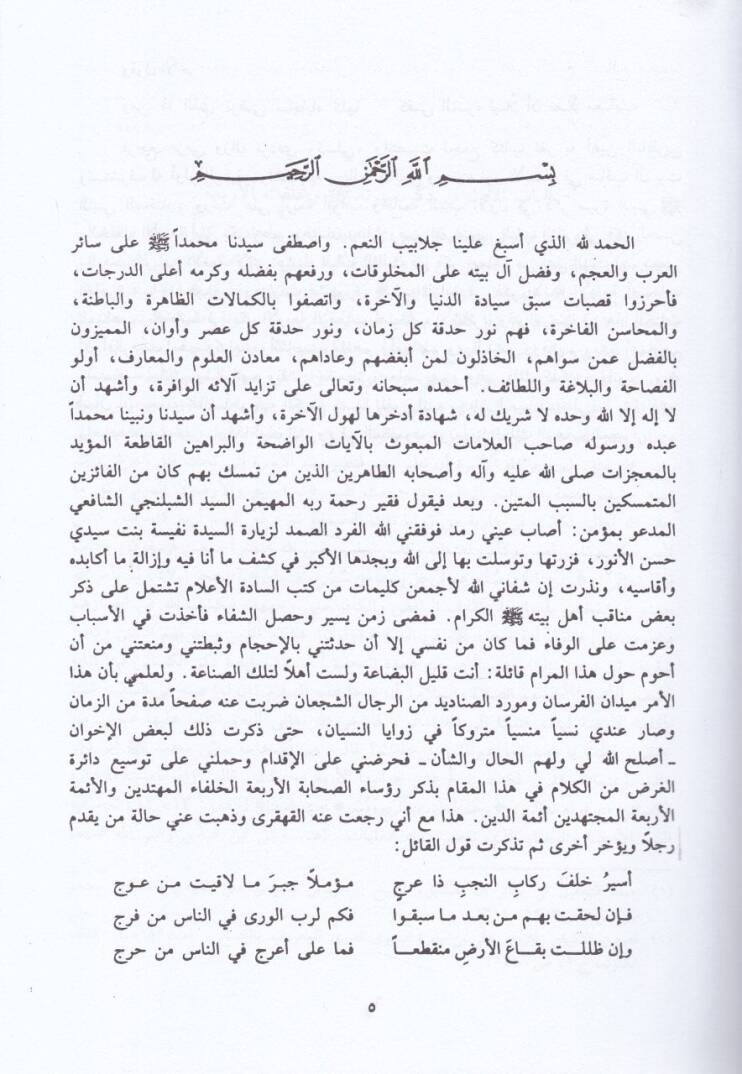 بِسْمِ اللَّهِ الرَّحْمَٰنِ الرَّحِيمِ
الحمد لله الذي أسبغ علينا جلابيب النعم. واصطفى سيدنا محمداً ﷺ على سائر
العرب والعجم، وفضل آل بيته على المخلوقات، ورفعهم بفضله وكرمه أعلى الدرجات،
فأحرزوا قصبات سبق سيادة الدنيا والآخرة، واتصفوا بالكمالات الظاهرة والباطنة،
والمحاسن الفاخرة، فهم نور حدقة كل زمان، ونور حدقة كل عصر وأوان، المميزون
بالفضل عمن سواهم، الخاذلون لمن أبغضهم وعاداهم، معادن العلوم والمعارف، أولو
الفصاحة والبلاغة واللطائف. أحمده سبحانه وتعالى على تزايد آلائه الوافرة، وأشهد أن
لا إله إلا الله وحده لا شريك له، شهادة أدخرها لهول الآخرة، وأشهد أن سيدنا ونبينا محمداً
عبده ورسوله صاحب العلامات المبعوث بالآيات الواضحة والبراهين القاطعة المؤيد
بالمعجزات صلى الله عليه وآله وأصحابه الطاهرين الذين من تمسك بهم كان من الفائزين
المتمسكين بالسبب المتين. وبعد فيقول فقير رحمة ربه المهيمن السيد الشبلنجي الشافعي
المدعو بمؤمن: أصاب عيني رمد فوفقني الله الفرد الصمد لزيارة السيدة نفيسة بنت سيدي
حسن الأنور، فزرتها وتوسلت بها إلى الله وبجدها الأكبر في كشف ما أنا فيه وإزالة ما أكابده
وأقاسيه، ونذرت إن شفاني الله لأجمعن كليمات من كتب السادة الأعلام تشتمل على ذكر
بعض مناقب أهل بيته ﷺ الكرام. فمضى زمن يسير وحصل الشفاء فأخذت في الأسباب
وعزمت على الوفاء فما كان من نفسي إلا أن حدثتني بالإحجام وثبطتني ومنعتني من أن
أحوم حول هذا المرام قائلة: أنت قليل البضاعة ولست أهلاً لتلك الصناعة. ولعلمي بأن هذا
الأمر ميدان الفرسان ومورد الصناديد من الرجال الشجعان ضربت عنه صفحاً مدة من الزمان
وصار عندي نسياً منسياً متروكاً في زوايا النسيان، حتى ذكرت ذلك لبعض الإخوان
ـ أصلح الله لي ولهم الحال والشأن ـ فحرضني على الإقدام وحملني على توسيع دائرة
الغرض من الكلام في هذا المقام بذكر رؤساء الصحابة الأربعة الخلفاء المهتدين والأئمة
الأربعة المجتهدين أئمة الدين. هذا مع أني رجعت عنه القهقرى وذهبت عني حالة من يقدم
رجلاً ويؤخر أخرى ثم تذكرت قول القائل:
أسيرُ خلفَ ركابِ النجبِ ذا عرجٍ مؤملاً جبرَ ما لاقيت من عوج
فإن لحقت بهم من بعد ما سبقوا فكم لرب الورى في الناس من فرج
وإن ظللت بقاعَ الأرضِ منقطعاً فما على أعرج في الناس من حرج
٥